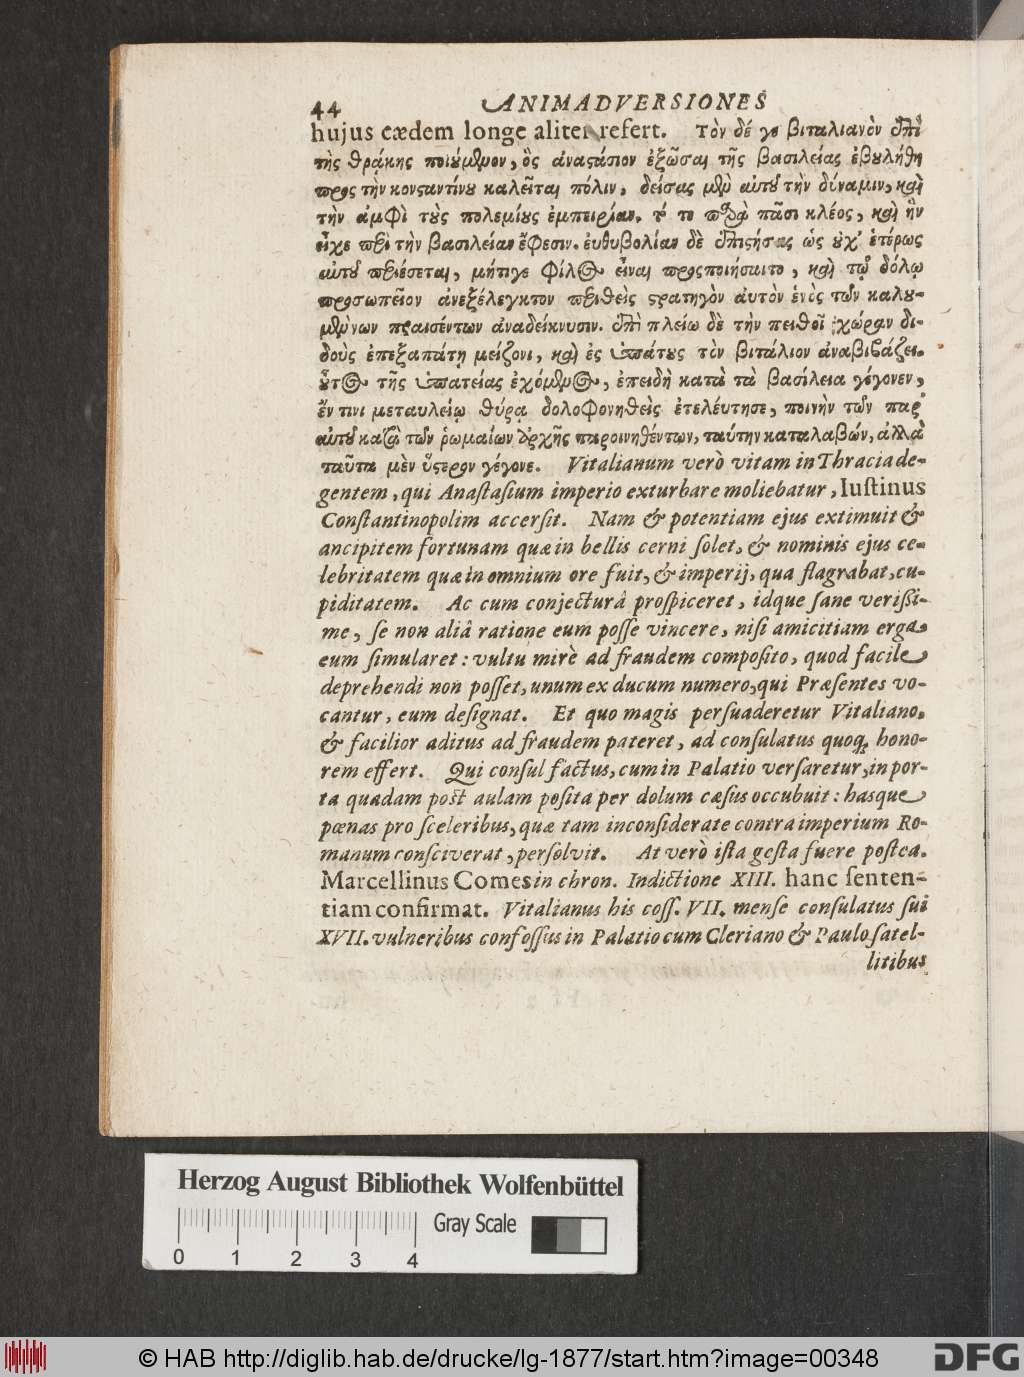 44 ANIMADVERSIONES
hujus cædem longe aliter refert. Τὸν δέ γε βιταλιανὸν ἐπὶ
τῆς θράκης ποιούμενον, ὃς ἀναστάσιον ἐξῶσαι τῆς βασιλείας ἐβουλήθη
προς τὴν κονσαντίνου καλεῖται πόλιν, δείσας μὲν αὐτοῦ τὴν δύναμιν, καὶ
τὴν ἀμφὶ τοὺς πολεμίους ἐμπειρίαν, τό τε παρὰ πᾶσι κλέος, καὶ ἣν
εἶχε περὶ τὴν βασιλείαν ἔφεσιν. εὐθυβολίαν δὲ ἐπιστήσας ὡς οὐχ' ἑτέρως
αὐτοῦ περιέσεται, μήτιγε φίλος εἶναι προσποιήσαιτο, καὶ τῷ δόλῳ
προσωπεῖον ἀνεξέλεγκτον περιθεὶς στρατηγὸν αὐτὸν ἑνὸς τῶν καλου-
μένων πραισέντων ἀναδείκνυσιν. ἐπὶ πλείω δὲ τὴν πειθοῖ χώραν δι-
δοὺς ἐπεξαπάτῃ μείζονι, καὶ ἐς ὑπάτους τὸν βιτάλιον ἀναβιβάζει.
οὗτος τῆς ὑπατείας ἐχόμενος, ἐπειδὴ κατὰ τὰ βασίλεια γέγονεν,
ἔν τινι μεταυλείῳ θύρᾳ δολοφονηθεὶς ἐτελέυτησε, ποινὴν τῶν παρ'
αὐτοῦ κατὰ τῶν ῥωμαίων ἀρχῆς παροινηθέντων, ταύτην καταλαβών, ἀλλὰ
ταῦτα μὲν ὕστερον γέγονε. Vitalianum verò vitam in Thracia de-
gentem, qui Anaſtaſium imperio exturbare moliebatur, Iuſtinus
Conſtantinopolim accerſit. Nam & potentiam ejus extimuit &
ancipitem fortunam quæ in bellis cerni ſolet, & nominis ejus ce-
lebritatem quæ in omnium ore fuit, & imperij, qua flagrabat, cu-
piditatem. Ac cum conjecturâ proſpiceret, idque ſane veriſſi-
me, ſe non aliâ ratione eum poſſe vincere, niſi amicitiam erga
eum ſimularet: vultu mirè ad fraudem compoſito, quod facile
deprehendi non poſſet, unum ex ducum numero, qui Præſentes vo-
cantur, eum deſignat. Et quo magis perſuaderetur Vitaliano,
& facilior aditus ad fraudem pateret, ad conſulatus quoq; hono-
rem effert. Qui conſul factus, cum in Palatio verſaretur, in por-
ta quadam poſt aulam poſita per dolum cæſus occubuit: hasque
pœnas pro ſceleribus, quæ tam inconſiderate contra imperium Ro-
manum conſciverat, perſolvit. At verò iſta geſta fuere poſtea.
Marcellinus Comes in chron. Indictione XIII. hanc ſenten-
tiam confirmat. Vitalianus his coſſ. VII. menſe conſulatus ſui
XVII. vulneribus confoſſus in Palatio cum Cleriano & Paulo ſatel-
litibus
Herzog August Bibliothek Wolfenbüttel
Gray Scale
0 1 2 3 4
© HAB http://diglib.hab.de/drucke/lg-1877/start.htm?image=00348
DFG